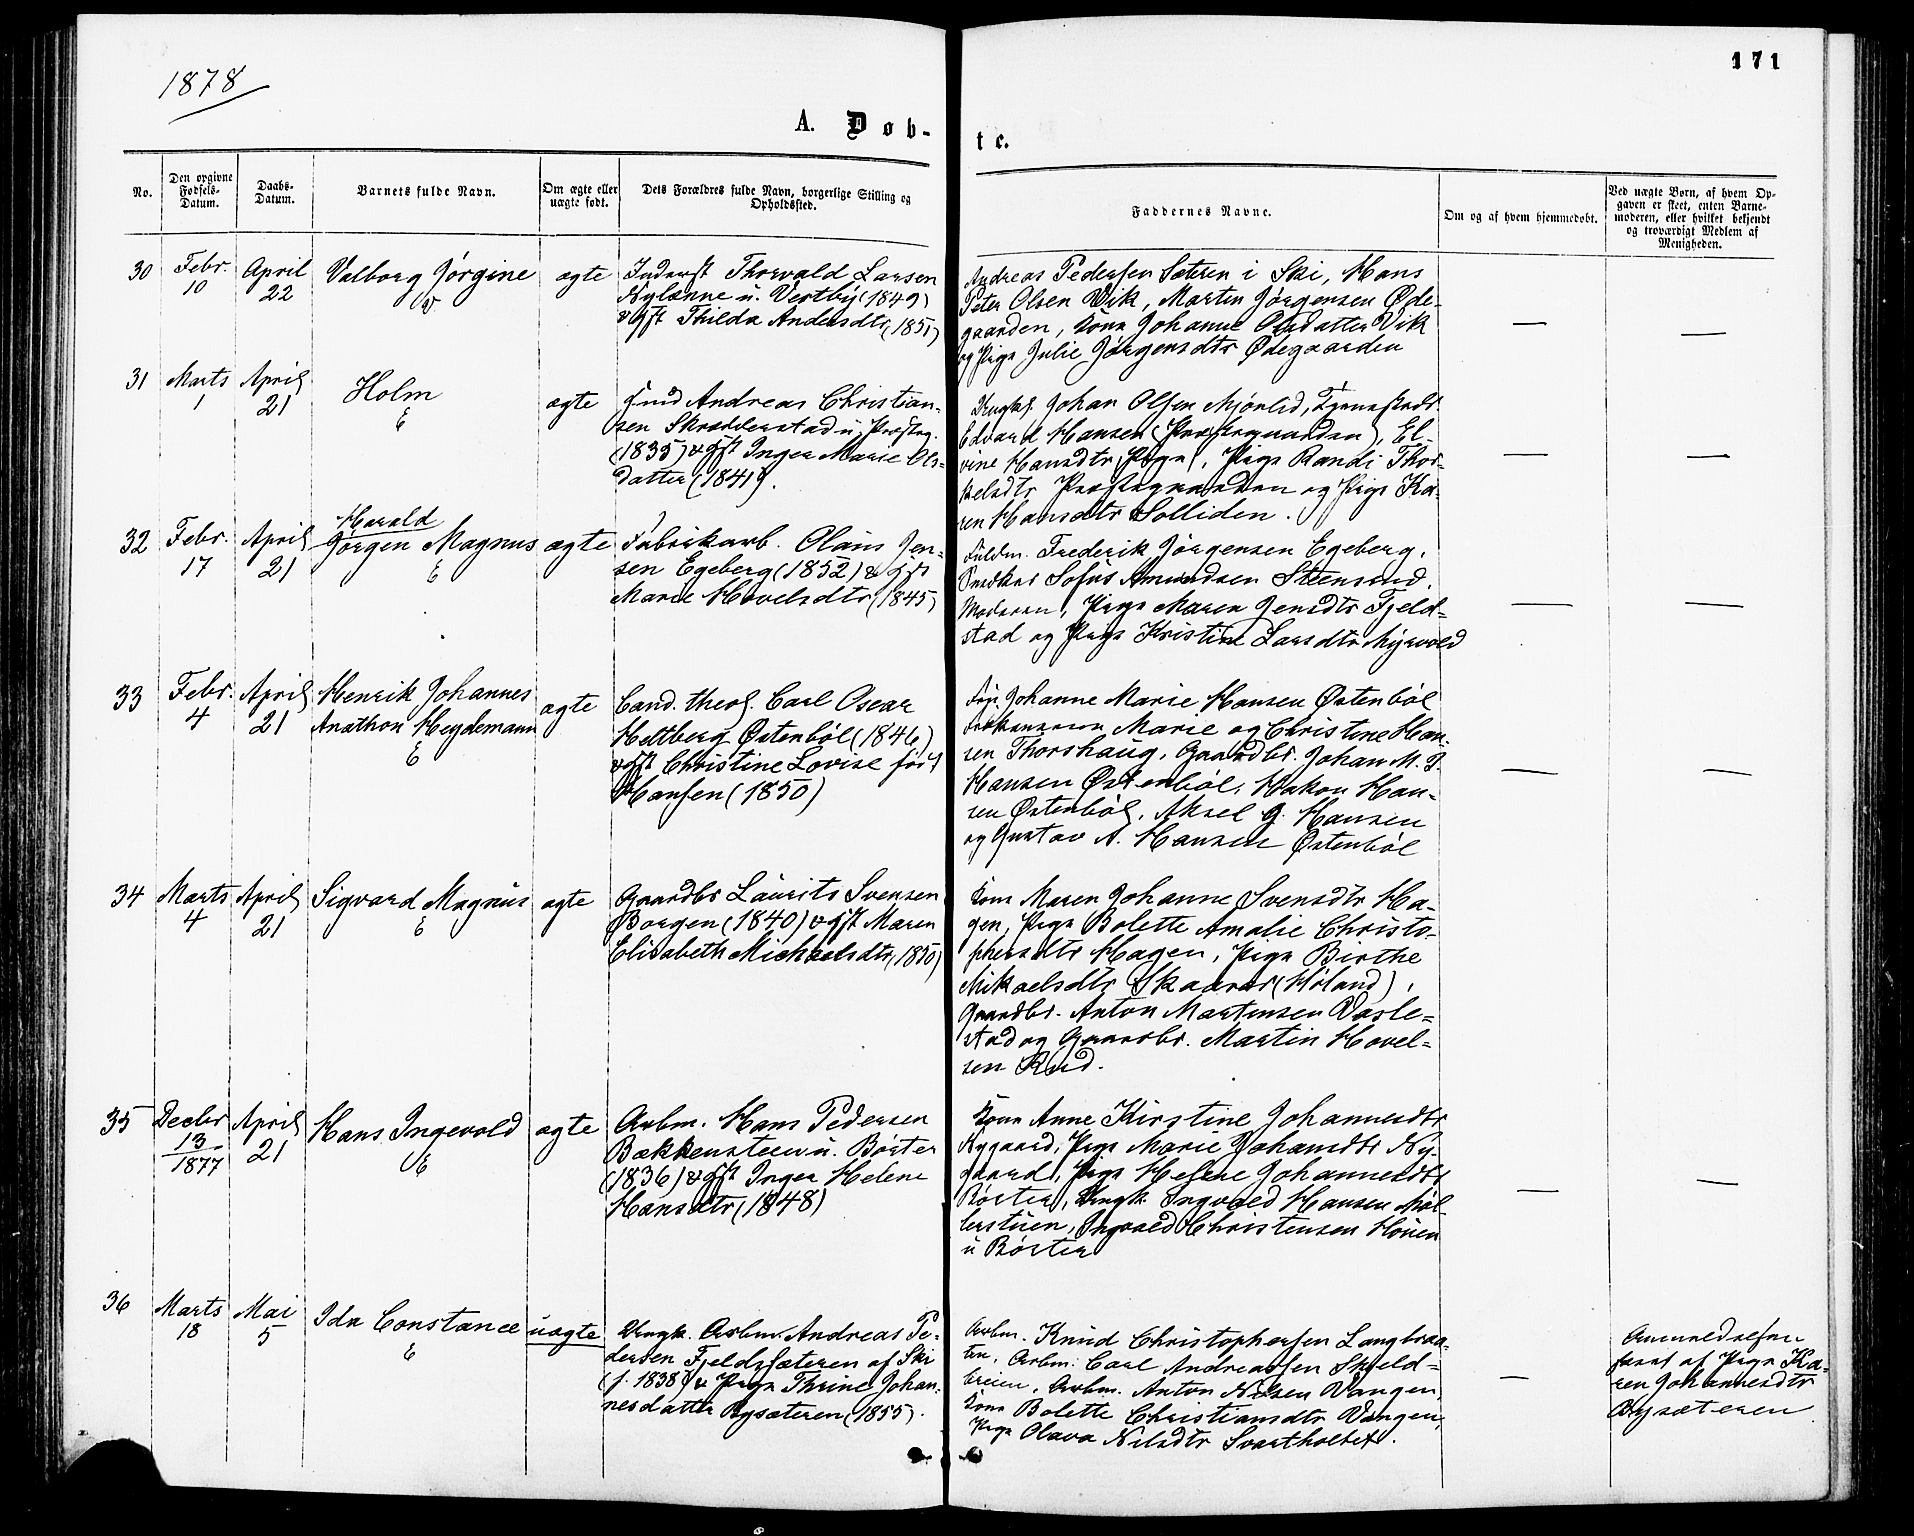 1878
171
A. Døb-
te.
No.
Den opgivne Fødsels-Datum.
Daabs-Datum.
Barnets fulde Navn.
Om ægte eller uægte født.
Dets Forældres fulde Navn, borgerlige Stilling og Opholdssted.
Faddernes Navne.
Om og af hvem hjemmedøbt.
Ved uægte Børn, af hvem Opgaven er skeet, enten Barnemoderen, eller hvilket bekjendt og troværdigt Medlem af Menigheden.
30
Febr. 10
April 22
Valborg Jørgine
ægte
Inderst Thorvald Larsen
Nylænne u. Vestby (1849)
og gft Thilda Andersdtr (1851)
Andreas Pedersen Sæteren i Ski, Hans
Peter Olsen Vik, Martin Jørgensen Øde-
gaarden, Kone Johanne Olsdatter Vik
og Pige Julie Jørgensdtr Ødegaarden
—
—
31
Marts 1
April 21
Holm
E
ægte
Andreas Christian-
sen Skrædderstad u. Præsteg.
(1835) & gft Inger Marie Ols-
datter (1841).
Ungkf. Johan Olsen Mjørlid,
Edvard Hansen (Præstegaarden), El-
vine Hansdtr (Pige), Pige Randi Thor-
kelsdtr Præstegaarden og Pige Ka-
ren Hansdtr Solliden.
—
—
32
Febr. 17
April 21
Harald
Jørgen Magnus
E
ægte
Fabrikarb. Olaus Jen-
sen Egeberg (1852) & gft
Maren Hovelsdtr (1845)
Fuldm. Frederik Jørgensen Egeberg,
Snedker Sofus Amundsen Steensrud,
Moderen, Pige Maren Jensdtr Fjeld-
stad og Pige Kristine Larsdtr Myrvold
—
—
33
Febr. 4
April 21
Henrik Johannes
Anathon Heydemann
E
ægte
Cand. theol. Carl Oscar
Heltberg Østenbøl (1846)
& gft Christine Lovise født
Hansen (1850)
Johanne Marie Hansen Østenbøl
Frøknerne Marie og Christine Han-
sen Thorshaug, Gaardbr. Johan M. P.
Hansen Østenbøl, Hakon Han-
sen Østenbøl, Aksel G. Hansen
og Gustav A. Hansen Østenbøl
—
—
34
Marts 4
April 21
Sigvard Magnus
E
ægte
Gaardbr Laurits Svensen
Borgen (1840) & gft Maren
Elisabeth Michaelsdtr (1850)
Kone Maren Johanne Svensdtr Ha-
gen, Pige Bolette Amalie Christo-
phersdtr Hagen, Pige Birthe
Mikaelsdtr Skaarer (Høland),
Gaardbr. Anton Martinsen Vasle-
stad og Gaardbr. Martin Hovel-
sen Rud.
35
Decbr 13
1877
April 21
Hans Ingevold
E
ægte
Arbm. Hans Pedersen
Bækkensteen u. Børter
(1836) & gft Inger Helene
Hansdtr (1848)
Kone Anne Kirstine Johannesdtr
Nygaard, Pige Marie Johansdtr Ny-
gaard, Pige Helene Johannesdtr
Børter, Ungk. Ingvald Hansen Møl-
lerstuen, Ingvald Christensen Houen
u Børter
—
—
36
Marts 18
Mai 5
Ida Constance
E
uægte
Ungk. Arbm. Andreas Pe-
dersen Fjeldsæteren af Ski
(f. 1838) & Pige Thrine Johan-
nesdatter Bysæteren (1855).
Arbm. Knud Christophersen Langbraa-
ten, Arbm. Carl Andreassen Skjeld-
breien, Arbm. Anton Nilsen Vangen,
Kone Bolette Christiansdtr Vangen,
Pige Olava Nilsdtr Svartholtet.
—
Anmeldelsen
af Pige Ka-
ren Johannesdtr
Bysæteren